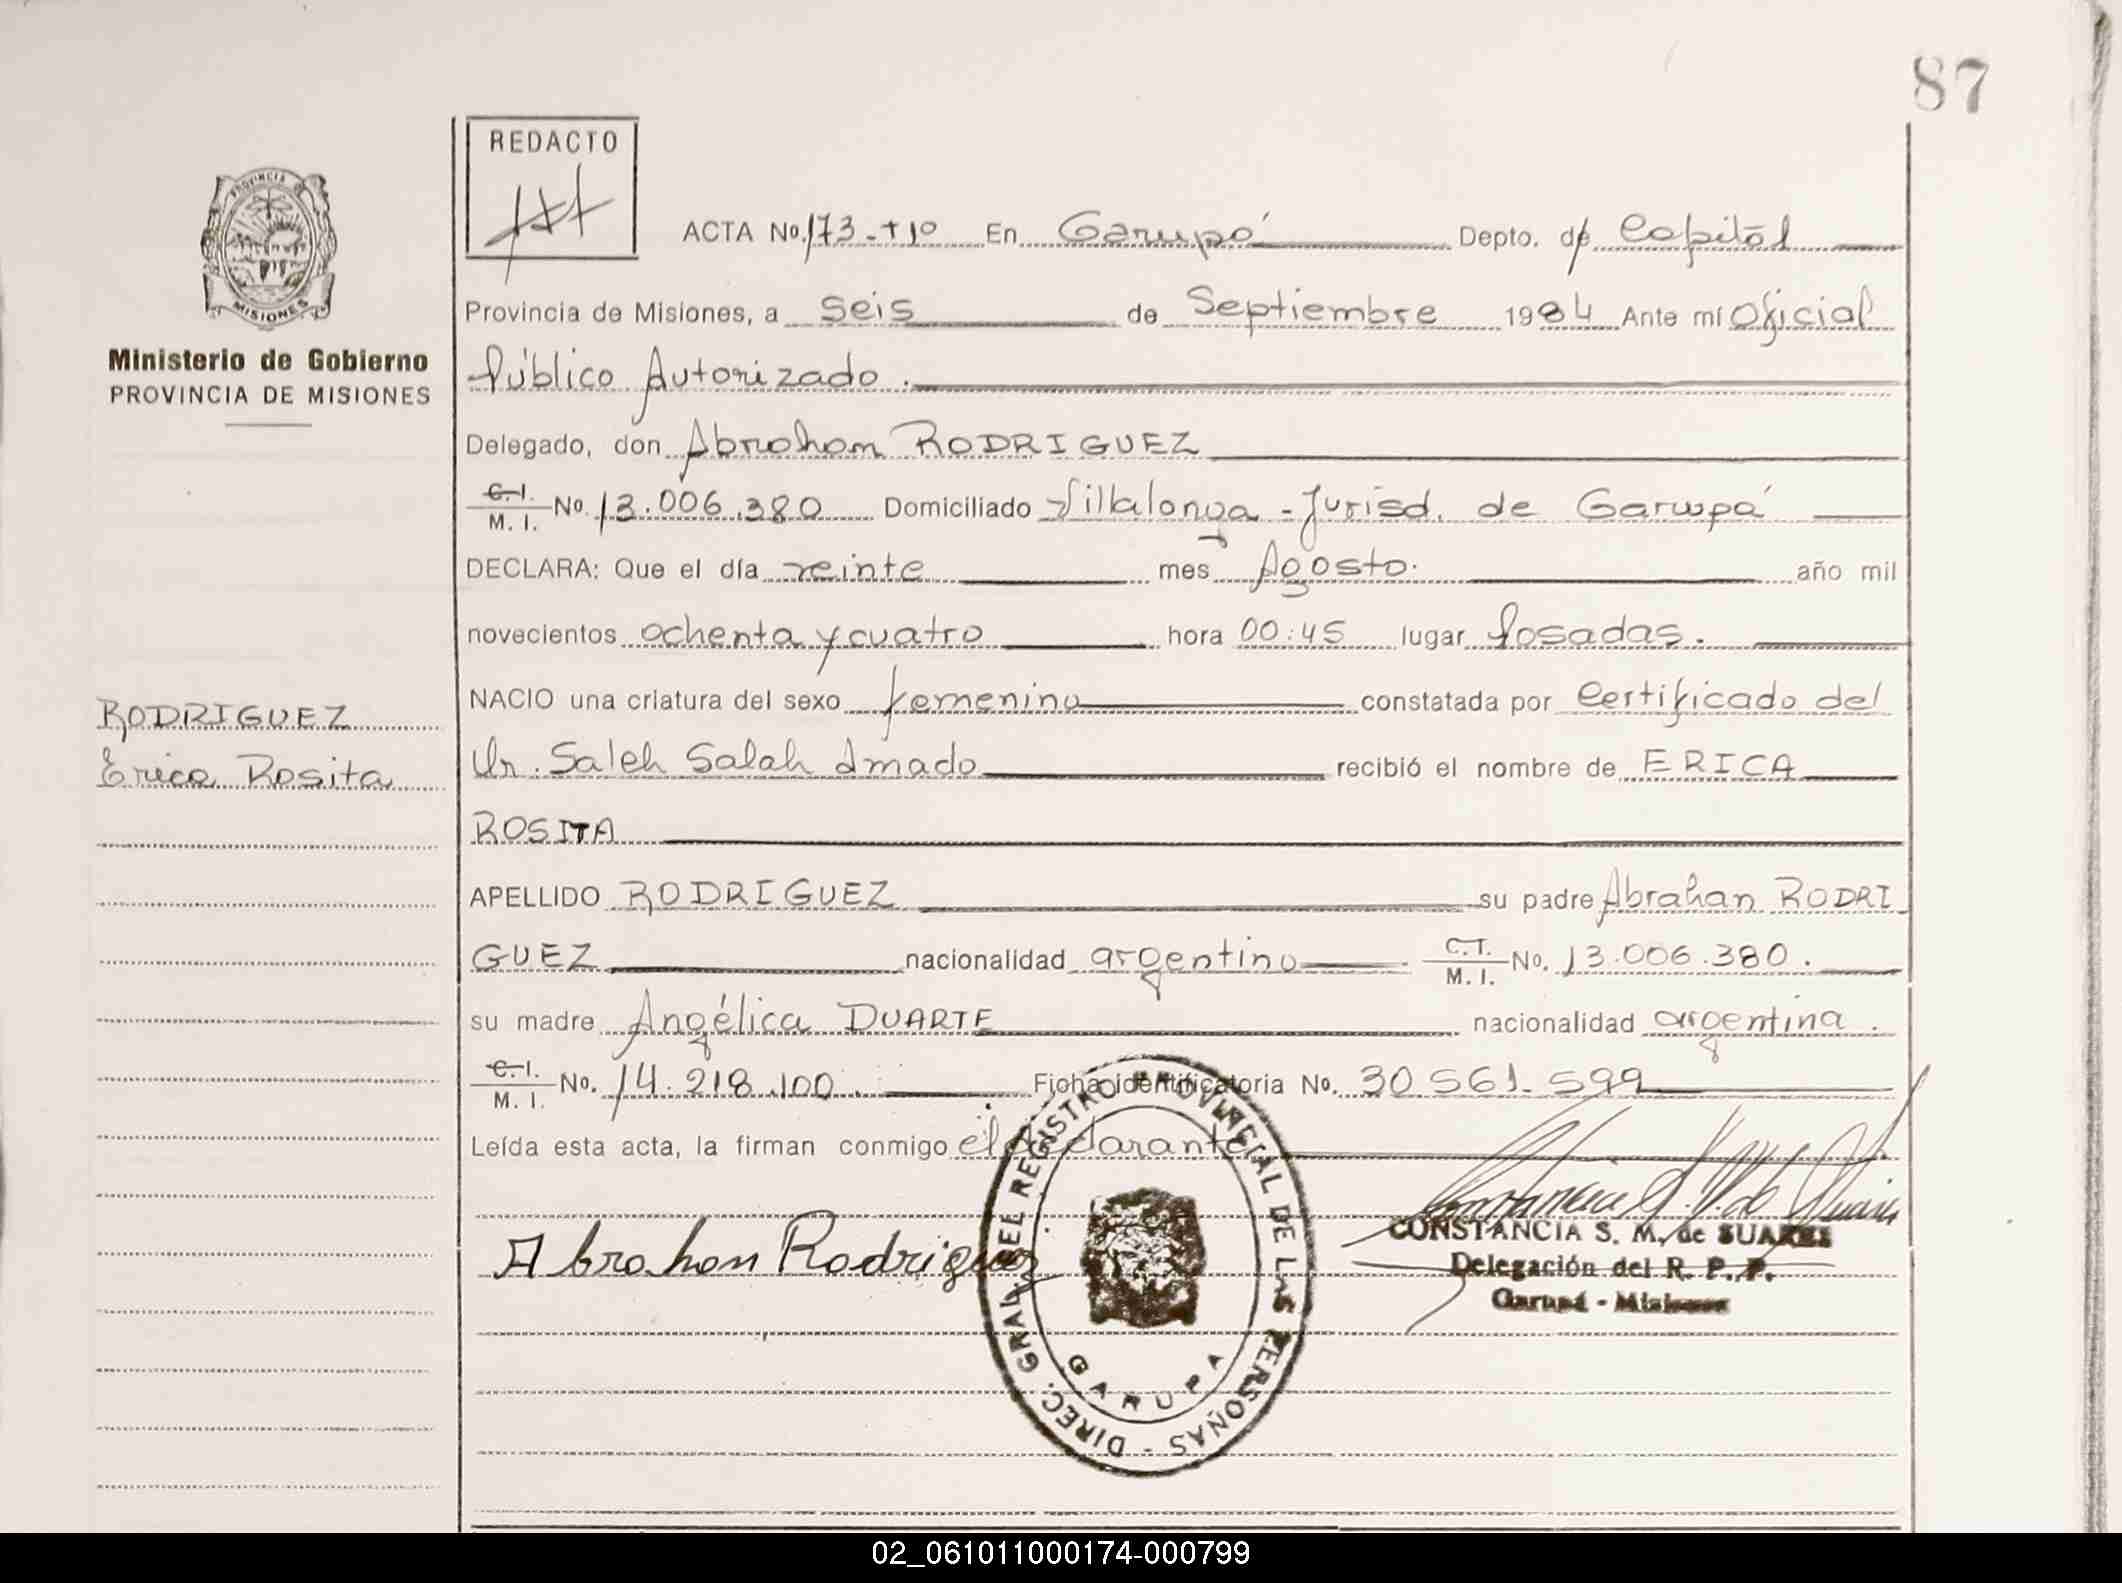 87
REDACTO
ACTA No. 173-T1º En Garupá Depto. de Capital
PROVINCIA
MISIONES
Provincia de Misiones, a seis de Septiembre 1984 Ante mí Oficial
Ministerio de Gobierno
PROVINCIA DE MISIONES
Público Autorizado.
Delegado, don Abrahan RODRIGUEZ
C.I.
M. I. No. 13.006.380 Domiciliado Villalonga - Jurisd. de Garupá
DECLARA: Que el día veinte mes Agosto. año mil
novecientos ochenta y cuatro hora 00:45 lugar Posadas.
NACIO una criatura del sexo femenino constatada por Certificado del
RODRIGUEZ
Erica Rosita
Dr. Saleh Salah Amado recibió el nombre de ERICA
ROSITA
APELLIDO RODRIGUEZ su padre Abrahan RODRI
GUEZ nacionalidad argentino C.I.
M. I. No. 13.006.380.
su madre Angélica DUARTE nacionalidad argentina.
C.I.
M. I. No. 14.218.100. Ficha identificatoria No. 30.561.599
Leída esta acta, la firman conmigo el declarante
Abrahan Rodriguez
DIREC. GRAL. DEL REGISTRO PROVINCIAL DE LAS PERSOÑAS -
GARUPA
CONSTANCIA S. M. de SUARES
Delegación del R. P. P.
Garupá - Misiones
02_061011000174-000799